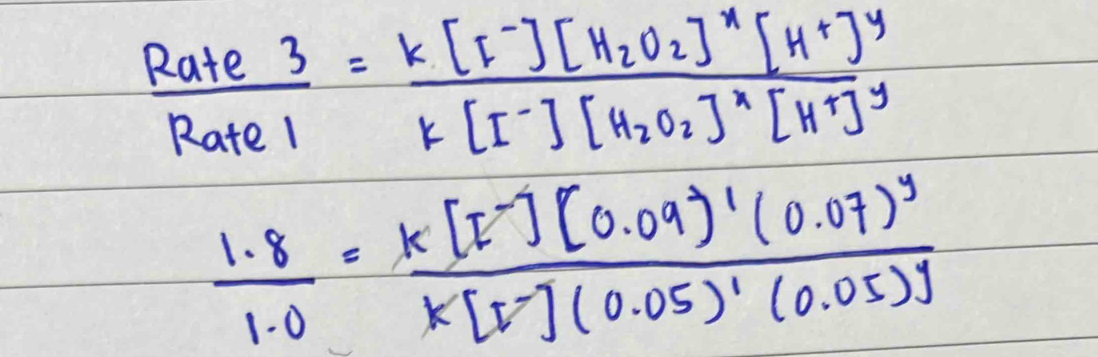 Rate 3 / Rate 1 = k[I⁻][H₂O₂]ˣ[H⁺]ʸ / k[I⁻][H₂O₂]ˣ[H⁺]ʸ
1.8 / 1.0 = k[I⁻][0.09)¹(0.07)ʸ / k[I⁻](0.05)¹(0.05)ʸ